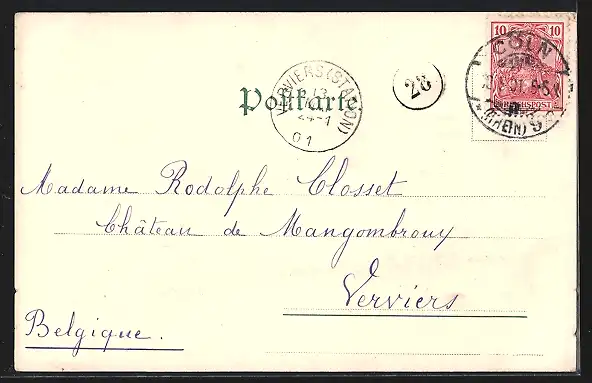 10 10
CÖLN
REICHSPOST
(RHEIN)
VERVIERS (STATION)
13
24-1
01
28
Postkarte
Madame Rodolphe Closset
Château de Mangombroux
Verviers
Belgique.